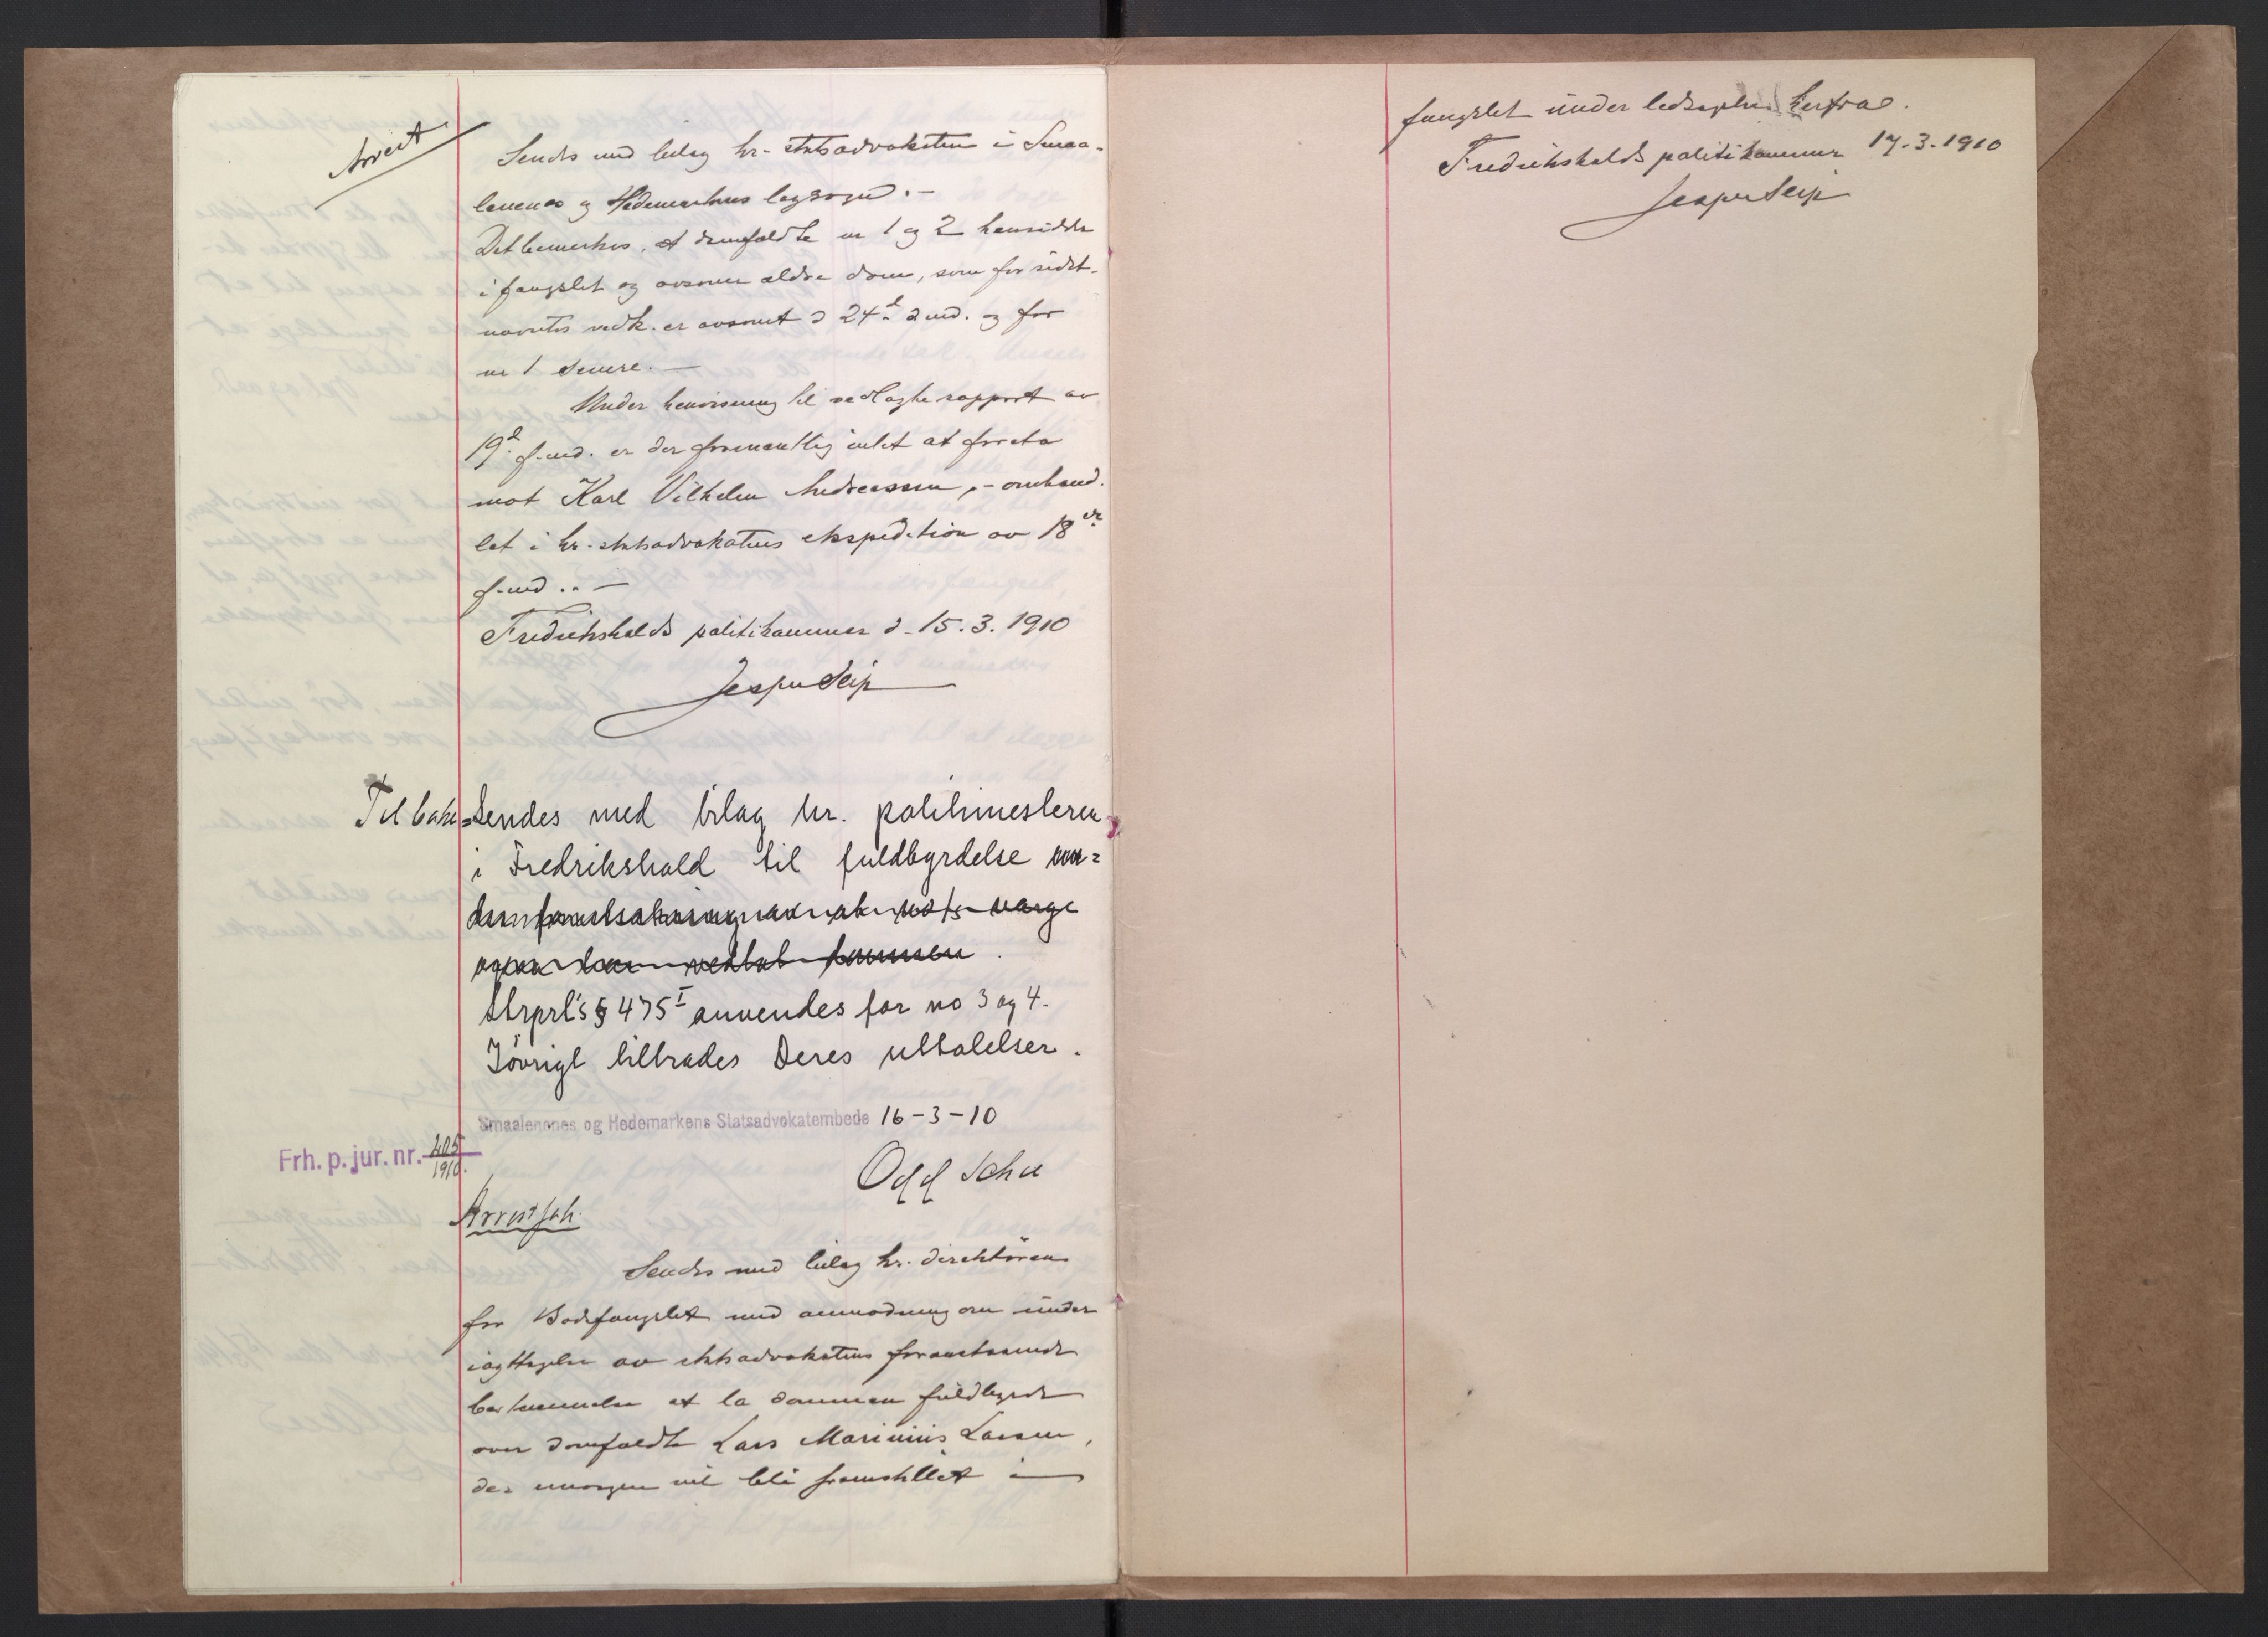 Arrest
Sendes med bilag hr. statsadvokaten i Smaa-
lenenes og Hedemarkens lagsogn. –
Det bemerkes, at domfældte nr 1 og 2 hensidder
i fængslet og avsoner ældre dom, som for sidst-
nævntes vedk. er avsonet d 24d ds md. og for
nr 1 senere. –
Under henvisning til vedlagte rapport av
19d f. md. er der formentlig intet at foreta
mot Karl Vilhelm Andreassen, – omhand-
let i hr. statsadvokatens ekspedition av 18de
f. md.. –
Fredrikshalds politikammer d. 15.3.1910
Jesper Seip
Tilbake=sendes med bilag hr. politimesteren
i Fredrikshald til fuldbyrdelse
Strprl's § 475 I anvendes for no 3 og 4.
Iøvrigt tiltrædes Deres uttalelser.
Smaalenenes og Hedemarkens Statsadvokatembede 16-3-10
Odd
Frh. p. jur. nr. 405/1910.
Arrestsak.
Sendes med bilag hr. direktøren
for Bodsfængslet med anmodning om under
iagttagelse av statsadvokatens foranstaaende
bestemmelse at la dommen fuldbyrde
over domfældte Lars Marinius Larsen,
der imorgen vil bli fremstillet i
fængslet under ledsagelse herfra.
Fredrikshalds politikammer 17.3.1910
Jesper Seip